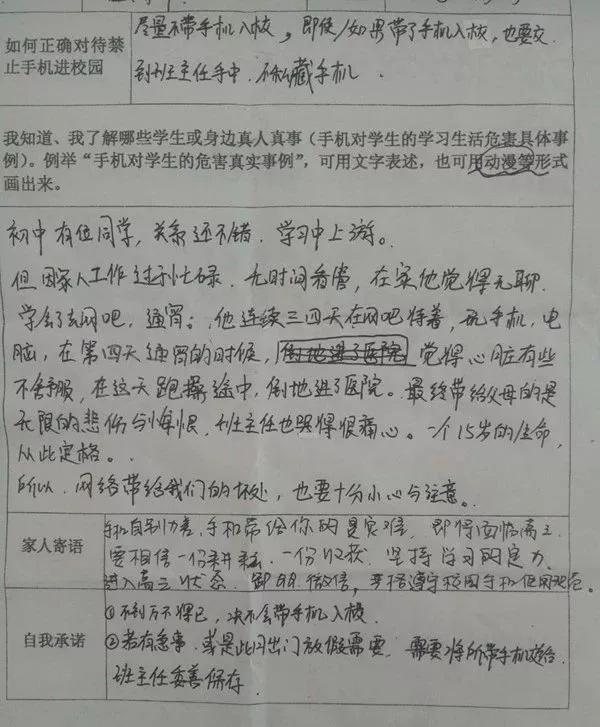 如何正确对待禁止手机进校园
尽量不带手机入校，即使/如果带了手机入校，也要交
到班主任手中，不私藏手机．
我知道、我了解哪些学生或身边真人真事（手机对学生的学习生活危害具体事
例）。例举“手机对学生的危害真实事例”，可用文字表述，也可用动漫等形式
画出来。
初中有位同学，关系还不错．学习中上游。
但因家人工作过于忙碌．无时间看管，在家他觉得无聊．
学会了去网吧，通宵；他连续三四天在网吧待着，玩手机，电
脑，在第四天通宵的时候，倒地进了医院 觉得心脏有些
不舒服，在这天跑操途中，倒地进了医院。最终带给父母的是
无限的悲伤与悔恨．班主任也哭得很痛心。一个15岁的生命，
从此定格。
所以．网络带给我们的坏处，也要十分小心与注意。
家人寄语
自制力差，手机带给你的是灾难．即将面临高三．
要相信一份耕耘．一份收获．坚持学习的定力．
进入高三状态．卸QQ．微信，严格遵守校园手机使用规范。
自我承诺
①不到万不得已，决不会带手机入校．
②若有急事．或是出门放假需要．需要将所带手机送给
班主任妥善保存．